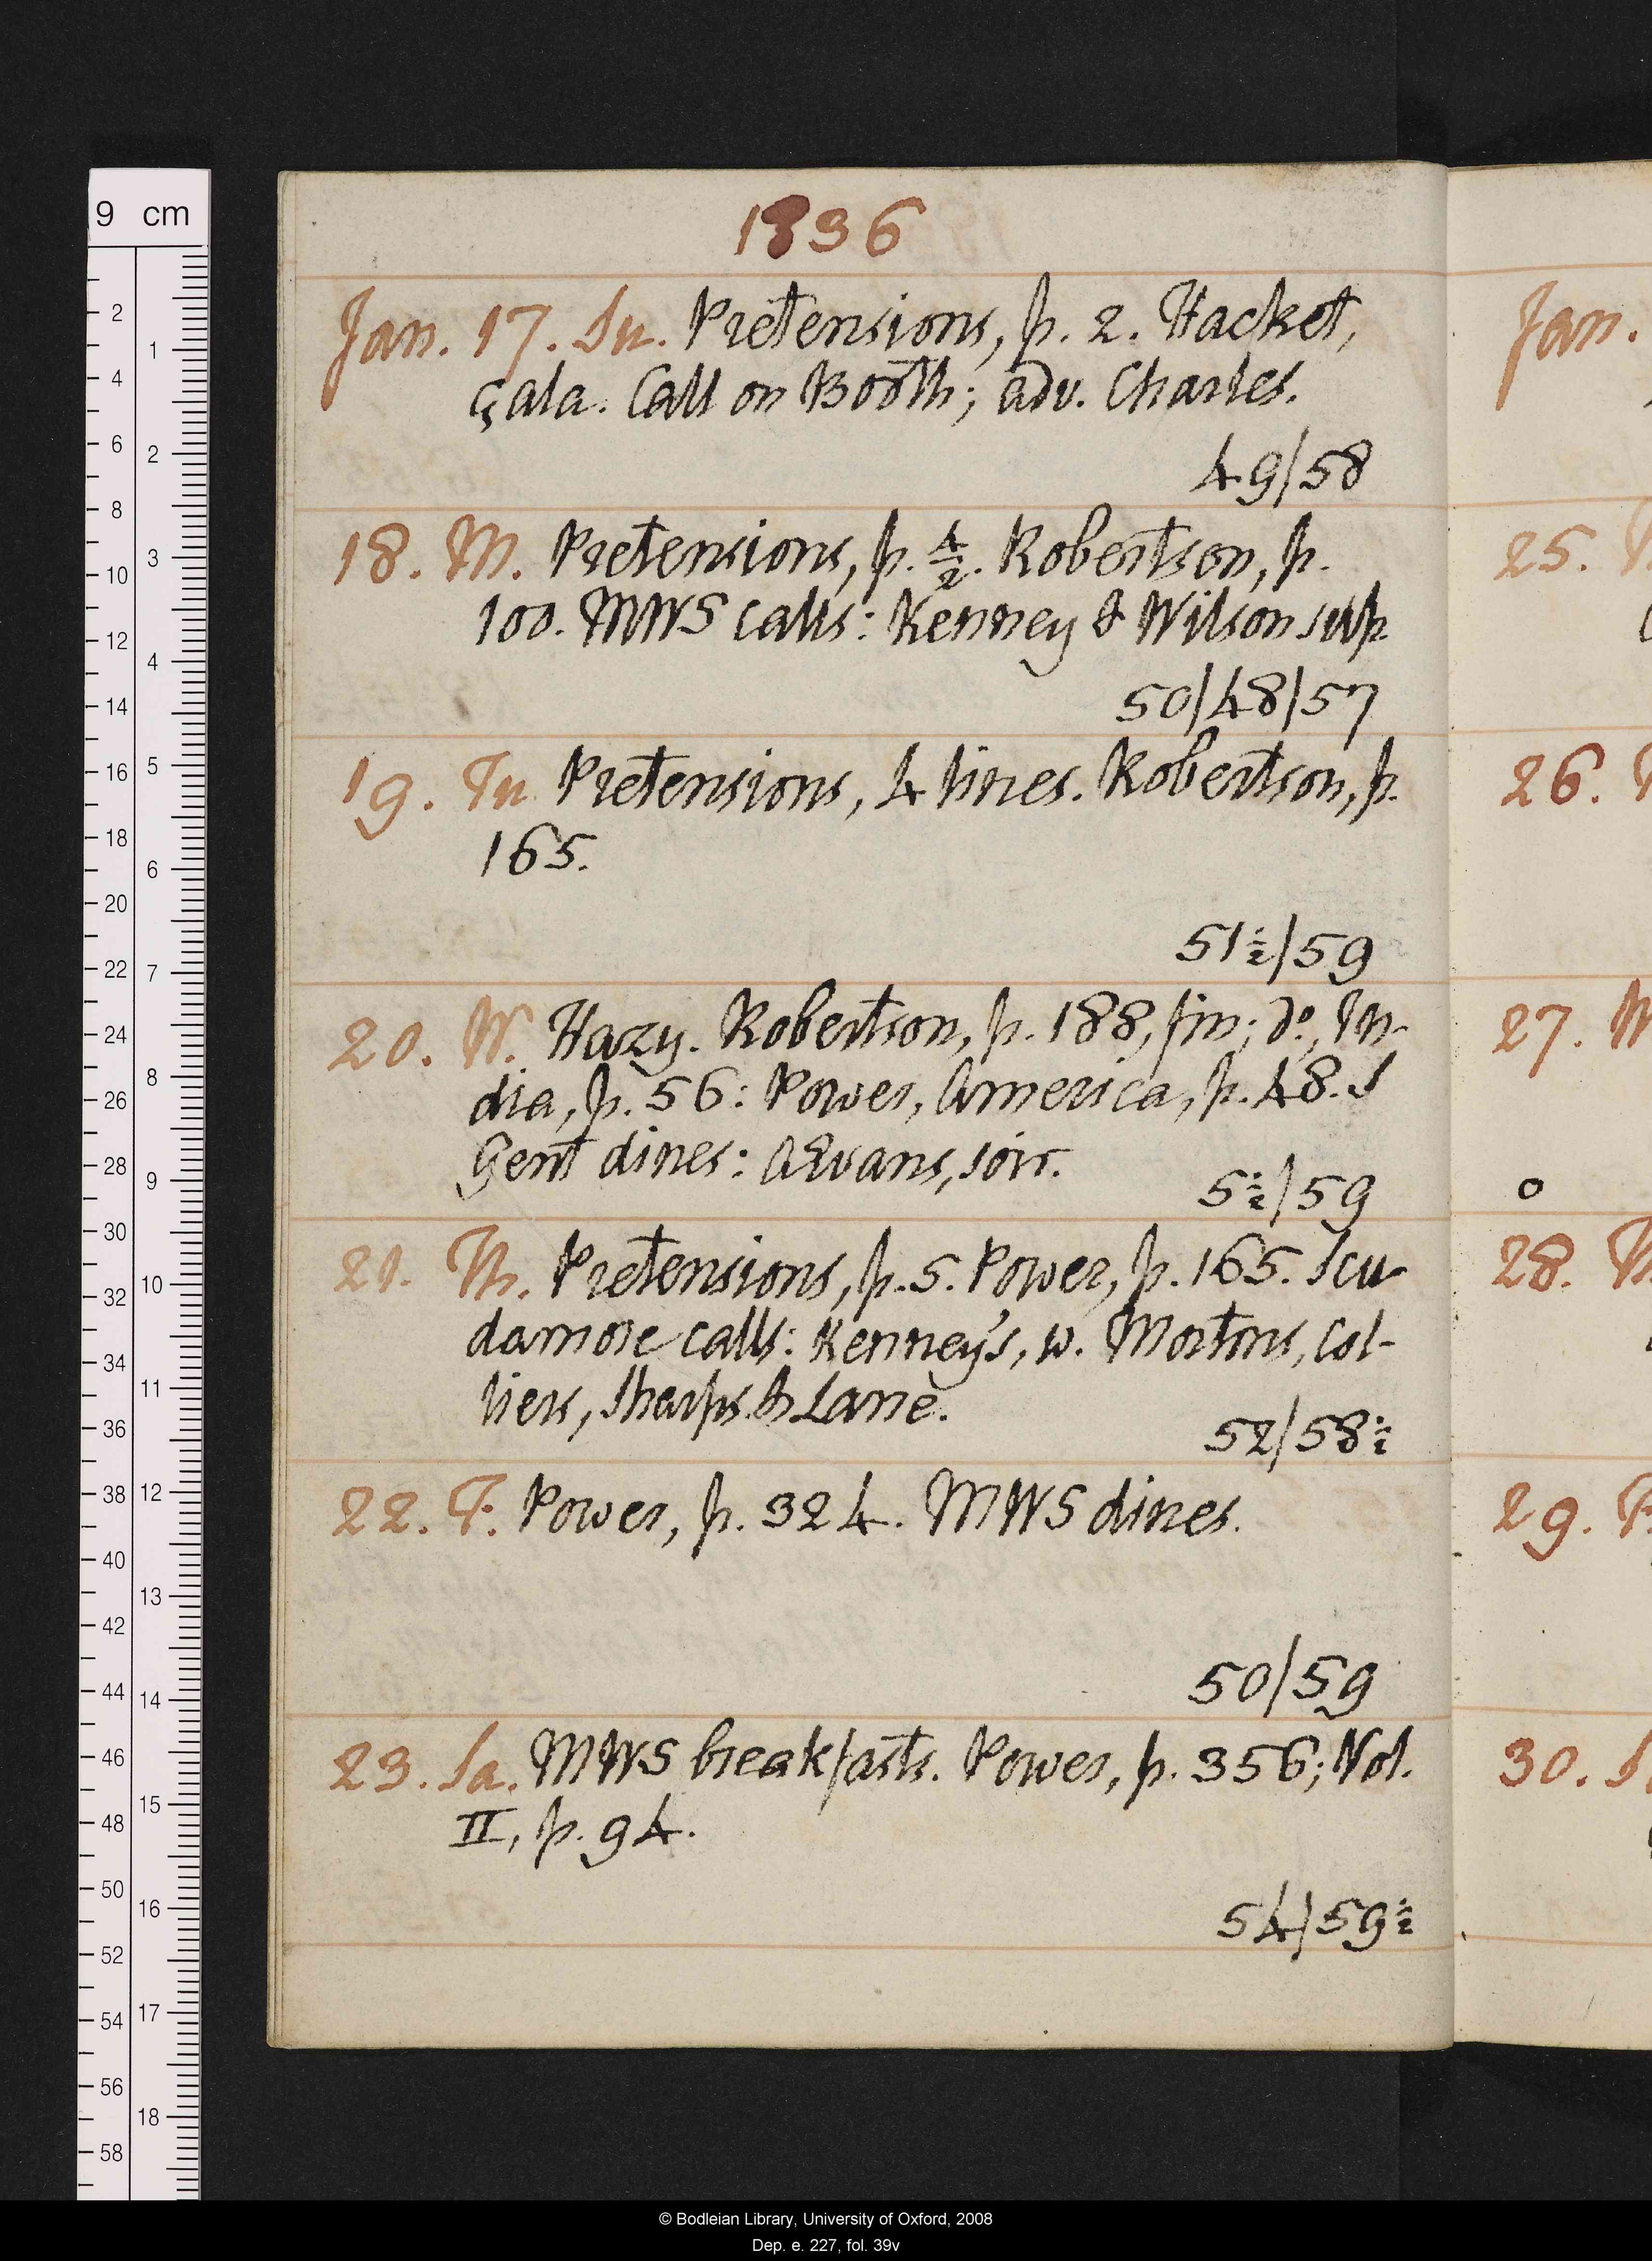 1836
Jan. 17. Su. Pretensions, p. 2. Hacket,
çala. Call on Booth; adv. Charles.
49/58
18. M. Pretensions, p. 4/2. Robertson, p.
100. MWS calls: Kenney & Wilson sup
50/48/57
19. Tu Pretensions, 4 lines. Robertson, p.
165.
51½/59
20. W. Hazy. Robertson, p. 188, fin; do., In-
dia, p. 56: Power, America, p. 48. J
Gent dines: AEvans, soir.
5½/59
21. Th. Pretensions, p. 5. Power, p. 165. Scu-
damore calls: Kenney's, w. Mortons, Col-
liers, Sharps & Lane.
52/58½
22. F. Power, p. 324. MWS dines.
50/59
23. Sa. MWS breakfasts. Power, p. 356; Vol.
II, p. 94.
54/59½
Jan.
25.
26.
27.
28.
29.
30.
9 cm
© Bodleian Library, University of Oxford, 2008
Dep. e. 227, fol. 39v